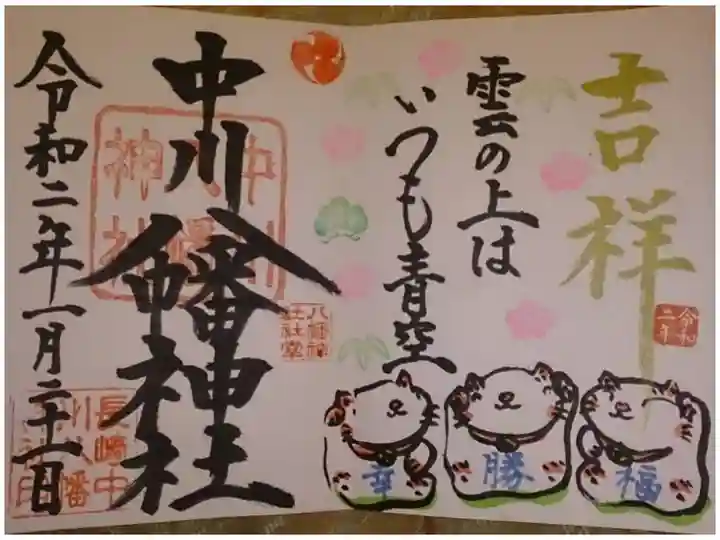 吉祥
令和
二年
雲の上は
いつも青空
福
勝
幸
中川八幡神社
中川
八幡
神社
八幡神
社社堂
長崎中
川八幡
令和二年一月二十一日